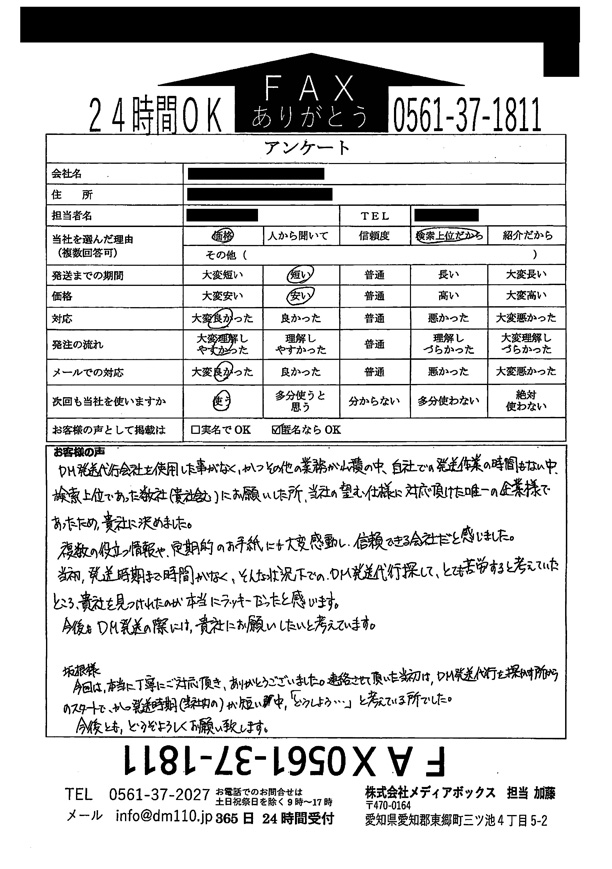 FAX
ありがとう
24時間OK
0561-37-1811
アンケート
会社名
住 所
担当者名 TEL
当社を選んだ理由（複数回答可） 価格 人から聞いて 信頼度 検索上位だから 紹介だから
その他（ ）
発送までの期間 大変短い 短い 普通 長い 大変長い
価格 大変安い 安い 普通 高い 大変高い
対応 大変良かった 良かった 普通 悪かった 大変悪かった
発注の流れ 大変理解しやすかった 理解しやすかった 普通 理解しづらかった 大変理解しづらかった
メールでの対応 大変良かった 良かった 普通 悪かった 大変悪かった
次回も当社を使いますか 使う 多分使うと思う 分からない 多分使わない 絶対使わない
お客様の声として掲載は □実名でOK ☑匿名ならOK
お客様の声
DM発送代行会社を使用した事がなく、かつその他の業務が山積の中、自社での発送作業の時間もない中、
検索上位であった数社(貴社含む)にお願いした所、当社の望む仕様に対応頂けた唯一の企業様で
あったため、貴社に決めました。
複数の役立つ情報や、定期的のお手紙にも大変感動し、信頼できる会社だと感じました。
当初、発送時期まで時間がなく、そんな状況下での、DM発送代行探しで、とても苦労すると考えていた
ところ、貴社を見つけれたのが本当にラッキーだったと感じます。
今後も DM発送の際には、貴社にお願いしたいと考えています。
坂根様
今回は、本当に丁寧にご対応頂き、ありがとうございました。連絡させて頂いた当初は、DM発送代行を探かす所から
のスタートで、かつ発送時期(案内の)が短い中、「どうしよう…」と考えている所でした。
今後とも、どうぞよろしくお願い致します。
FAX0561-37-1811
TEL 0561-37-2027 お電話でのお問合せは
土日祝祭日を除く9時～17時
メール info@dm110.jp 365日 24時間受付
株式会社メディアボックス 担当 加藤
〒470-0164
愛知県愛知郡東郷町三ツ池4丁目5-2